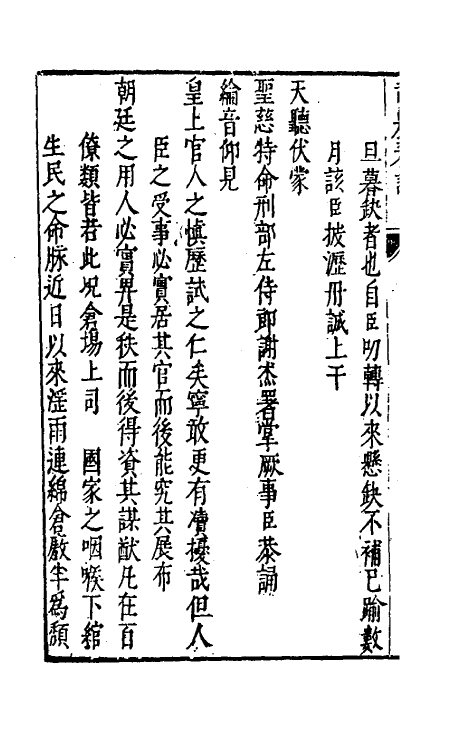 旦暮缺者也自臣叨轉以來懸缺不補已踰數
月該臣披瀝丹誠上干
天聽伏蒙
聖慈特命刑部左侍郎謝杰署掌厥事臣恭誦
綸音仰見
皇上官人之慎歷試之仁矣寧敢更有瀆擾哉但人
臣之受事必實居其官而後能究其展布
朝廷之用人必實畀是秩而後得資其謀猷凡在百
僚類皆若此况倉塲上司 國家之咽喉下綰
生民之命脉近日以來滛雨連綿倉廒半爲頽